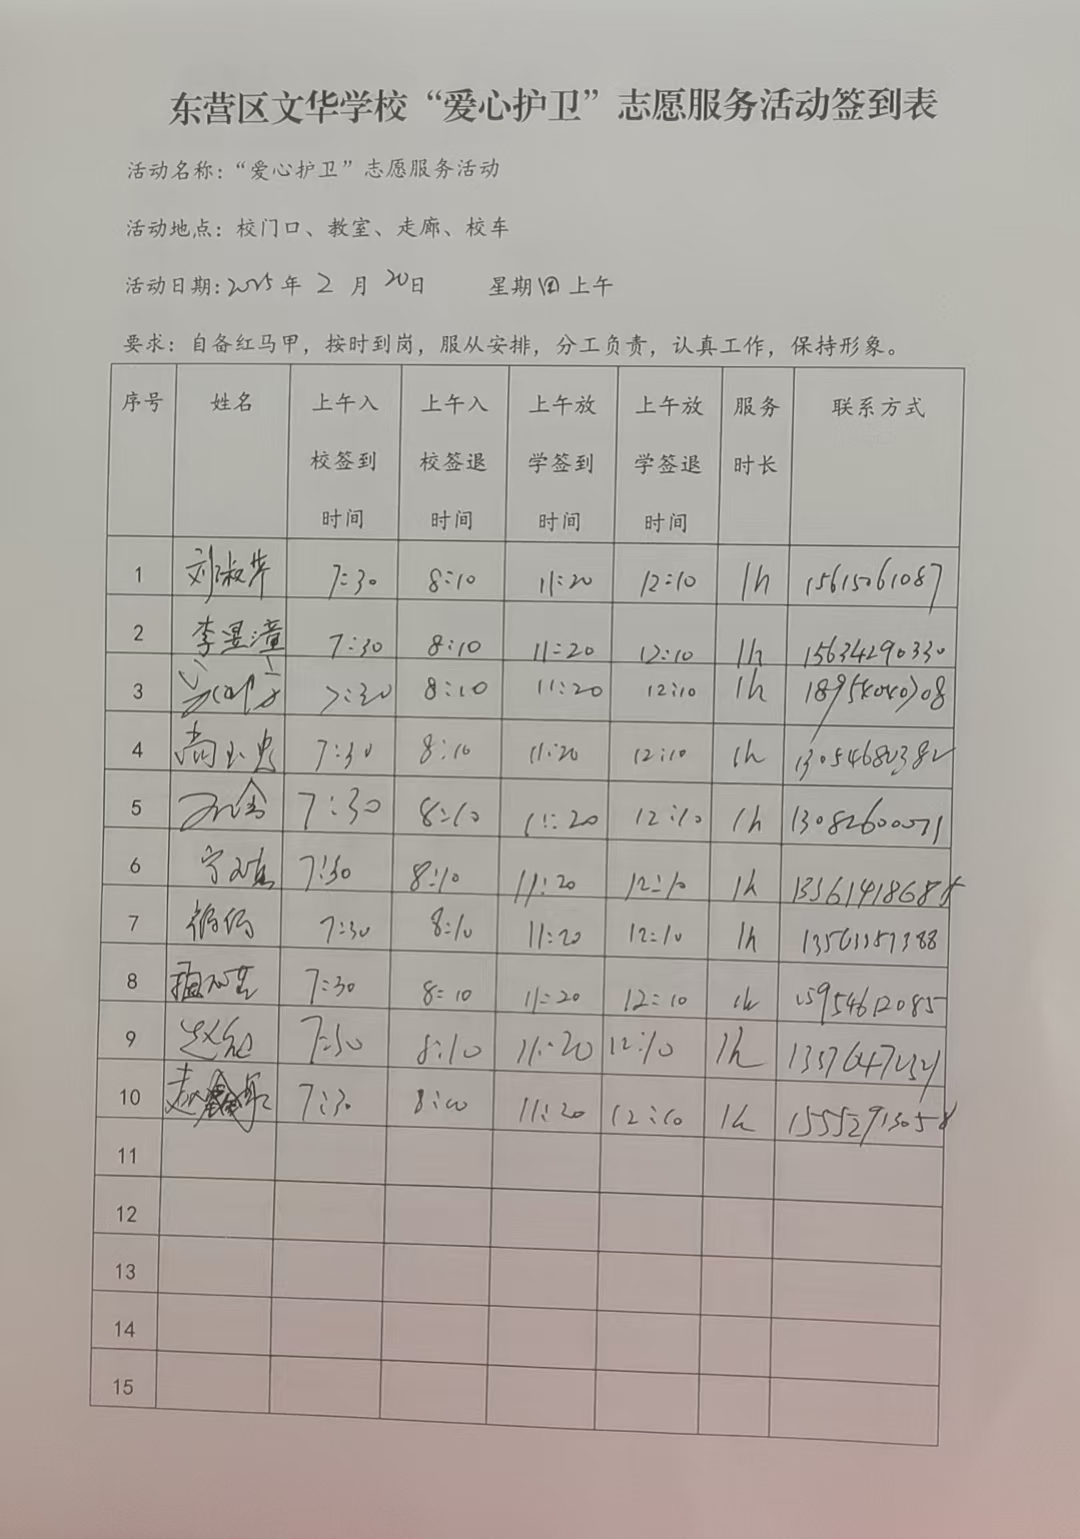 东营区文华学校“爱心护卫”志愿服务活动签到表
活动名称：“爱心护卫”志愿服务活动
活动地点：校门口、教室、走廊、校车
活动日期：2025年 2 月 20日 星期四上午
要求：自备红马甲，按时到岗，服从安排，分工负责，认真工作，保持形象。
序号 姓名 上午入校签到时间 上午入校签退时间 上午放学签到时间 上午放学签退时间 服务时长 联系方式
1 刘淑芹 7:30 8:10 11:20 12:10 1h 15615061087
2 李昱潼 7:30 8:10 11:20 12:10 1h 15634290330
3 7:30 8:10 11:20 12:10 1h
4 尚 7:30 8:10 11:20 12:10 1h
5 7:30 8:10 11:20 12:10 1h 13082600071
6 宁 7:30 8:10 11:20 12:10 1h
7 7:30 8:10 11:20 12:10 1h
8 7:30 8:10 11:20 12:10 1h 15954612085
9 赵 7:30 8:10 11:20 12:10 1h
10 7:30 11:20 12:10 1h 15552913058
11
12
13
14
15